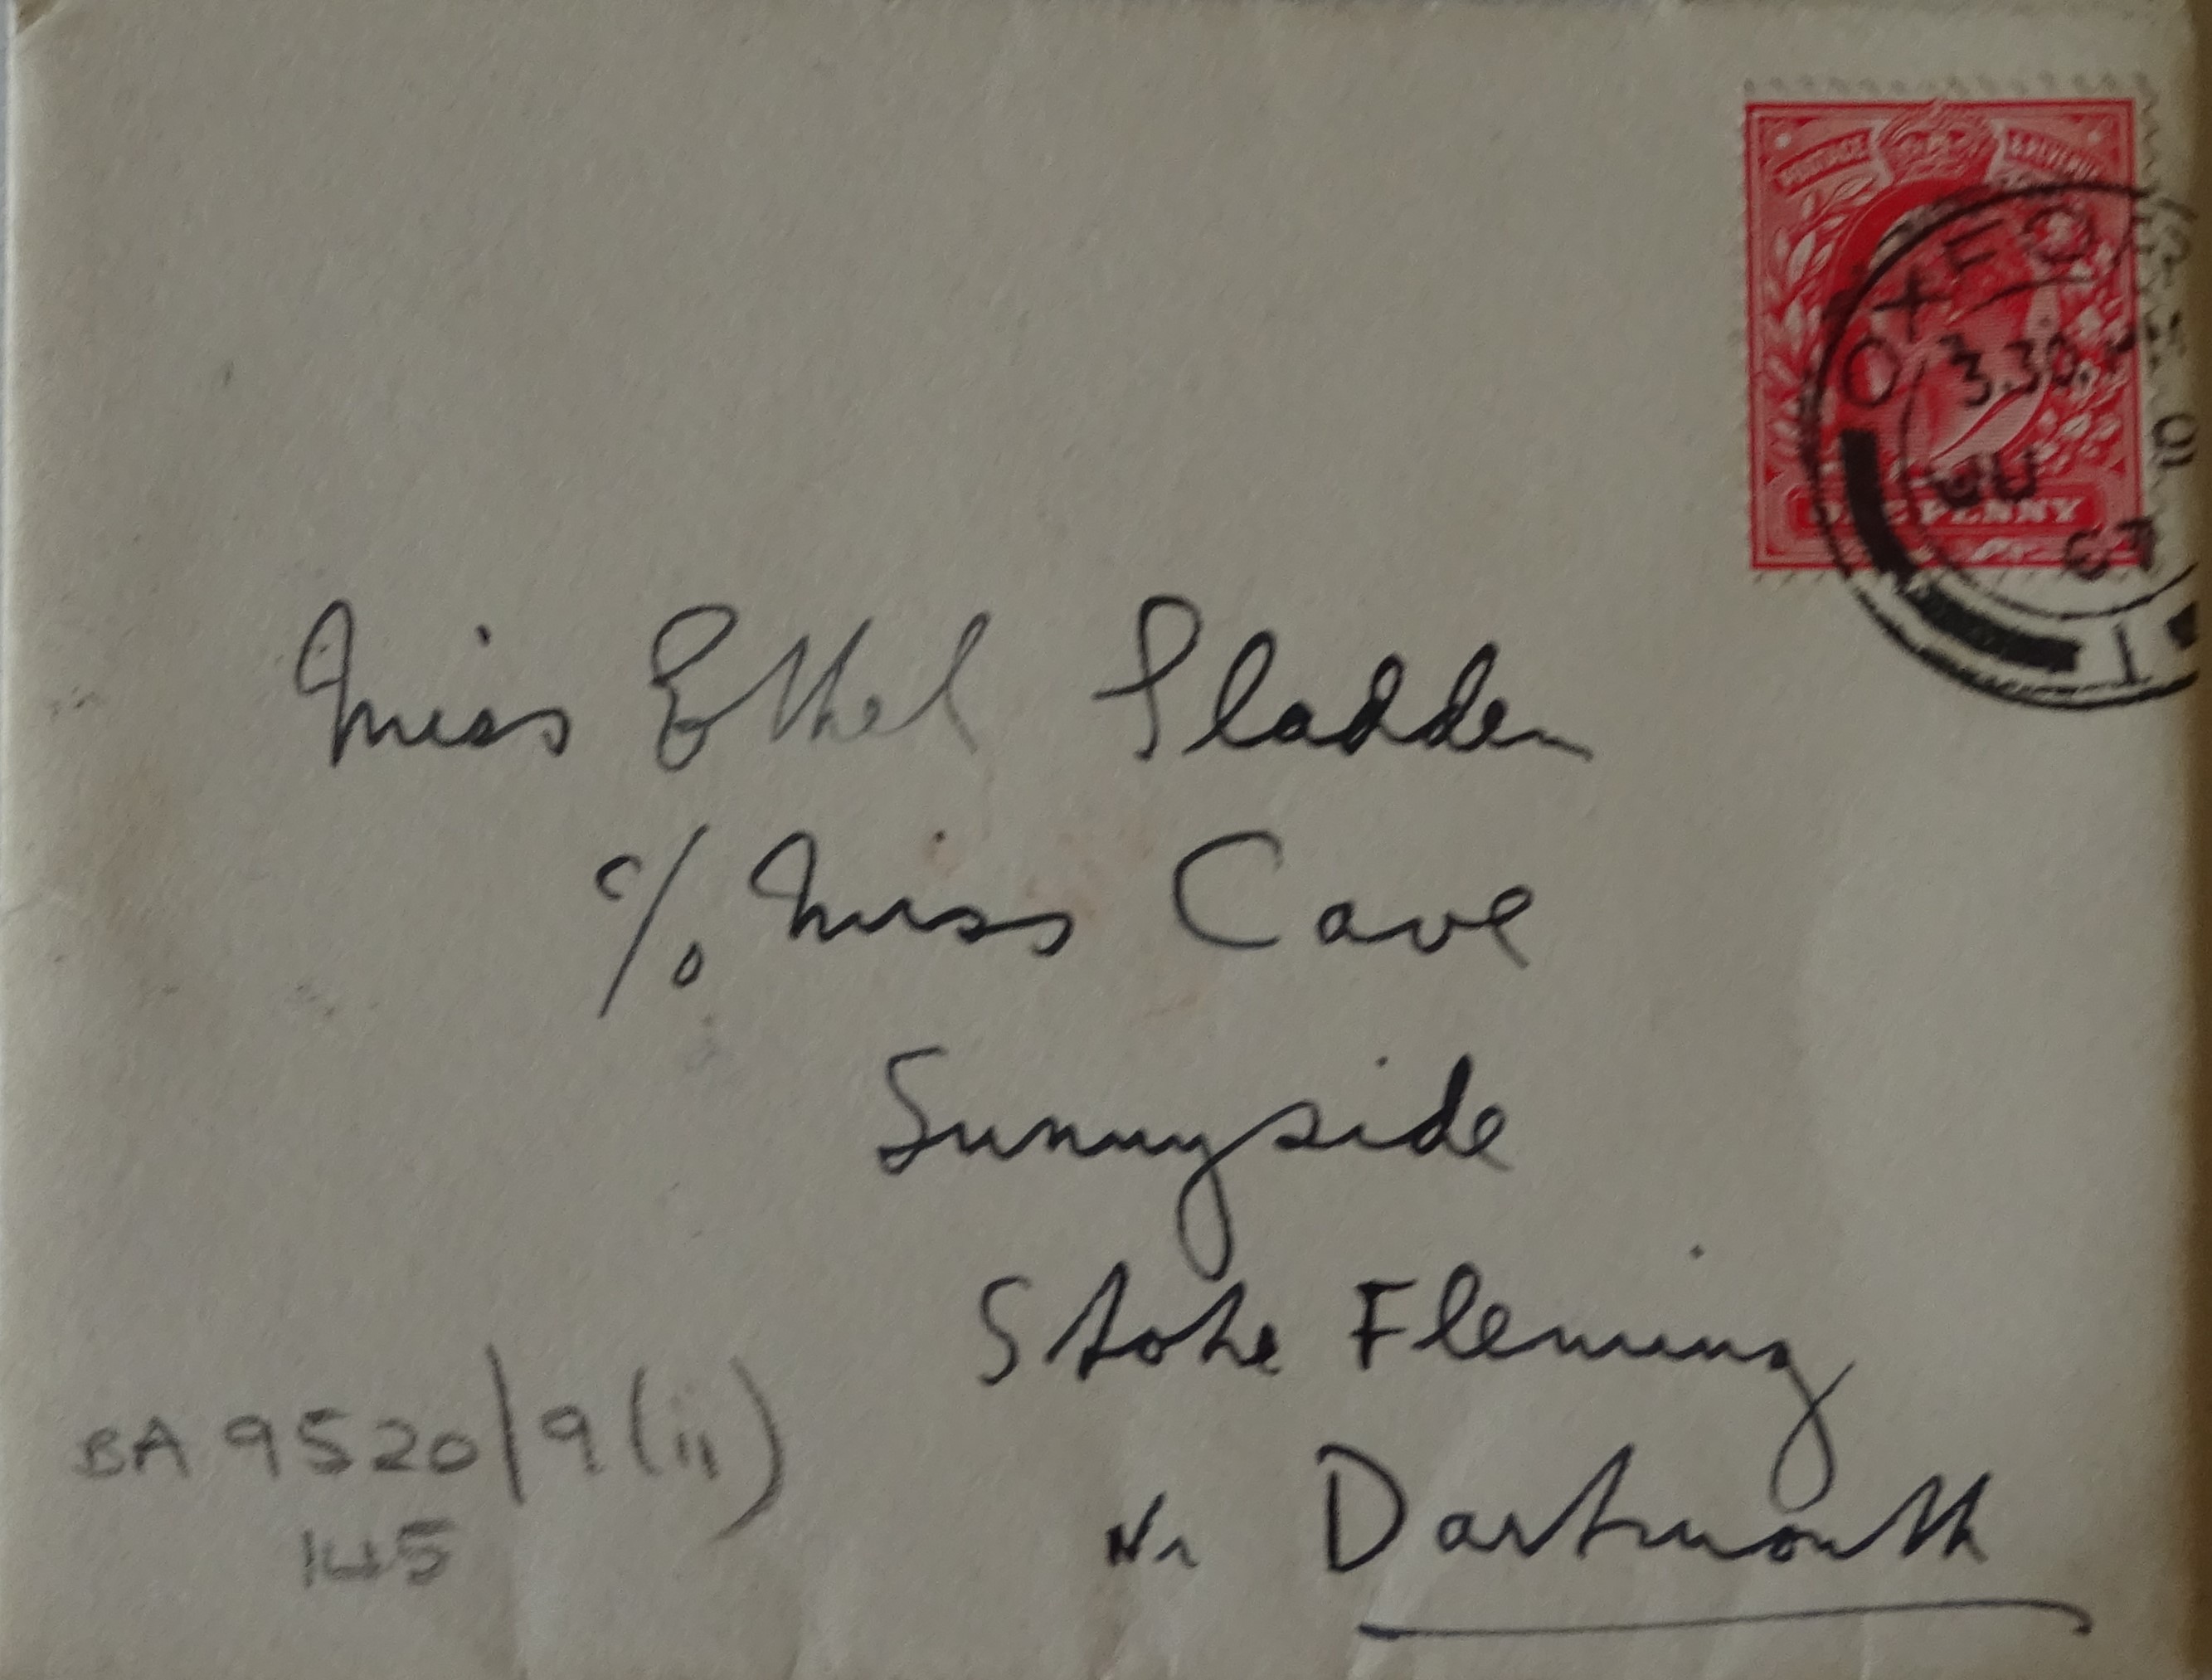 POSTAGE REVENUE
OXFO
3.30.
JU
ONE PENNY
1
Miss Ethel Sladden
c/o Miss Cave
Sunnyside
Stoke Fleming
Nr Dartmouth
BA 9520/9(ii)
145